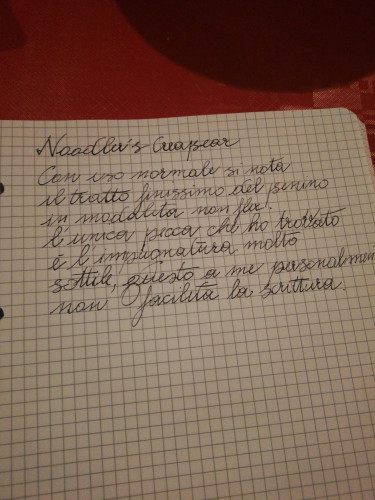 Noodler's Creaper
Con uso normale si nota
il tratto finissimo del penino
in modalità non flex.
L'unica pecca che ho trovato
è l'impugnatura molto
sottile, questo a me personalmen
non facilita la scrittura.